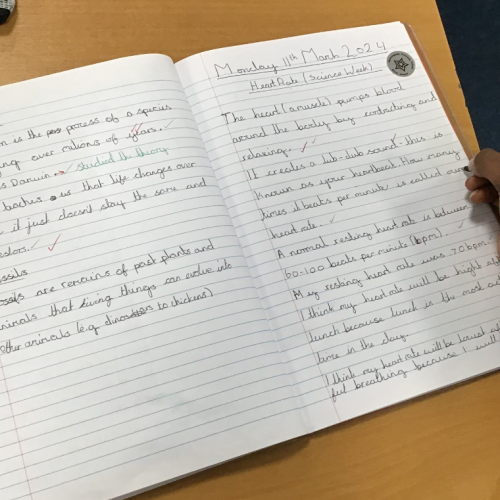 n is the process of a species
ing over millions of years.
s Darwin studied the theory
teaches us that life changes over
it just doesn't stay the same and
estors.
ossils
ossils are remains of past plants and
animals that living things can evolve into
other animals (e.g dinosaurs to chickens)
Monday 11th March 2024
Heart Rate (Science Week)
The heart (a muscle) pumps blood
around the body by contracting and
relaxing.
It creates a lub-dub sound - this is
known as your heartbeat. How many
times it beats per minute is called our
heart rate.
A normal resting heart rate is between
60-100 beats per minute (bpm).
My resting heart rate was 70bpm
I think my heart rate will be highest
lunch because lunch is the most
time in the day.
I think my heart rate will be lowest
ful breathing because I will